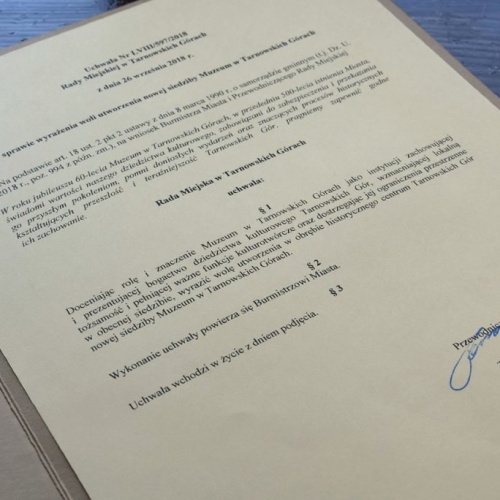 Uchwała Nr LVIII/597/2018
Rady Miejskiej w Tarnowskich Górach
z dnia 26 września 2018 r.
sprawie wyrażenia woli utworzenia nowej siedziby Muzeum w Tarnowskich Górach
Na podstawie art. 18 ust. 2 pkt 2 ustawy z dnia 8 marca 1990 r. o samorządzie gminnym (t.j. Dz. U.
2018 r., poz. 994 z późn. zm.), na wniosek Burmistrza Miasta i Przewodniczącego Rady Miejskiej
W roku jubileuszu 60-lecia Muzeum w Tarnowskich Górach, w przededniu 500-lecia istnienia Miasta,
świadomi wartości naszego dziedzictwa kulturowego, zobowiązani do zabezpieczenia i przekazania
go przyszłym pokoleniom, pomni doniosłych wydarzeń oraz znaczących procesów historycznych
kształtujących przeszłość i teraźniejszość Tarnowskich Gór, pragniemy zapewnić godne
ich zachowanie.
Rada Miejska w Tarnowskich Górach
uchwala:
§ 1
Doceniając rolę i znaczenie Muzeum w Tarnowskich Górach jako instytucji zachowującej
i prezentującej bogactwo dziedzictwa kulturowego Tarnowskich Gór, wzmacniającej lokalną
tożsamość i pełniącej ważne funkcje kulturotwórcze oraz dostrzegając jej ograniczenia przestrzenne
w obecnej siedzibie, wyrazić wolę utworzenia w obrębie historycznego centrum Tarnowskich Gór
nowej siedziby Muzeum w Tarnowskich Górach.
§ 2
Wykonanie uchwały powierza się Burmistrzowi Miasta.
§ 3
Uchwała wchodzi w życie z dniem podjęcia.